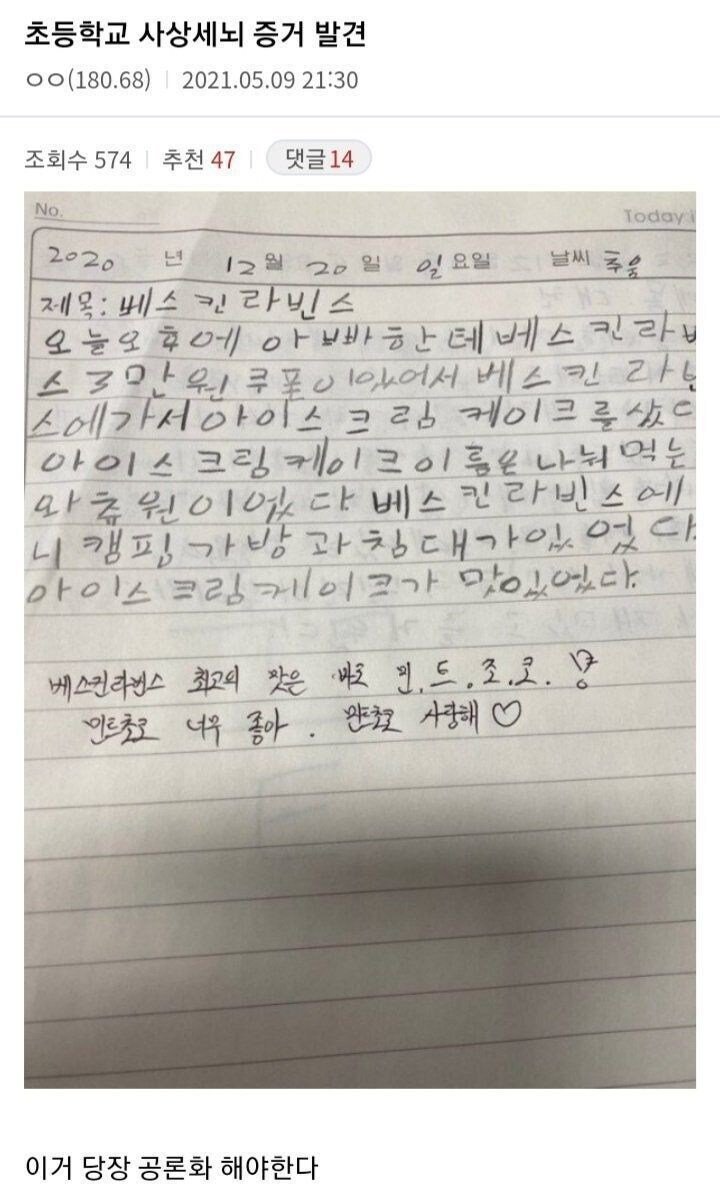 초등학교 사상세뇌 증거 발견
ㅇㅇ(180.68) | 2021.05.09 21:30
조회수 574 | 추천 47 | 댓글 14
No. Today
2020 년 12월 20일 일요일 날씨 추움
제목: 베스킨라빈스
오늘오후에 아빠한테베스킨라
스3만원쿠폰이있어서 베스킨라
스에가서아이스크림 케이크를샀
아이스크림케이크이름은나눠먹는
와츄원이었다 베스킨라빈스에
니캠핑가방과침대가있었다.
아이스크림케이크가 맛있었다.
베스킨라빈스 최고의 맛은 바로 민.트.초.코.
민트초코 너무 좋아. 민트초코 사랑해♡
이거 당장 공론화 해야한다